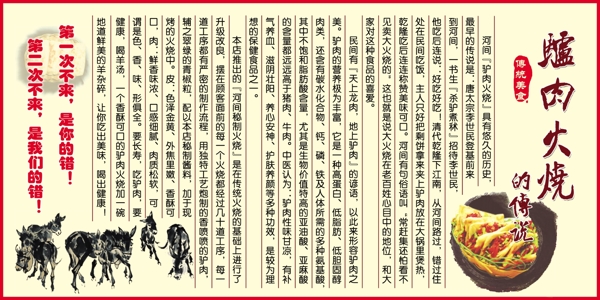 驢肉火燒
的傳說
傳統美食
河间『驴肉火烧』具有悠久的历史,
最早的传说是:唐太宗李世民登基前来
到河间,一书生『杀驴煮秫』招待李世民,
他吃后连说:好吃好吃!清代乾隆下江南,从河间路过,错过住
处在民间吃饭,主人只好把剩饼拿来夹上驴肉放在大锅里煲热,
乾隆吃后连连称赞美味可口。河间有句俗语叫,常赶集还怕看不
见卖大火烧的。这也就是说大火烧在老百姓心目中的地位,和大
家对这种食品的喜爱。
民间有『天上龙肉,地上驴肉』的谚语,以此来形容驴肉之
美。驴肉的营养极为丰富,它是一种高蛋白、低脂肪、低胆固醇
肉类,还含有碳水化合物、钙、磷、铁及人体所需的多种氨基酸,
其中不饱和脂肪酸含量,尤其是生物价值特高的亚油酸、亚麻酸
的含量都远远高于猪肉、牛肉。中医认为:驴肉性味甘凉,有补
气养血、滋阴壮阳、养心安神、护肤养颜等多种功效,是较为理
想的保健食品之一。
本店推出的『河间秘制火烧』是在传统火烧的基础上进行了
升级改良,摆在顾客面前的每一个火烧都经过几十道工序,每一
道工序都有严密的制作流程,用独特工艺炮制的香喷喷的驴肉,
辅之翠绿的青椒粒,配以本店秘制酱料,加于现
烤的火烧中。皮:色泽金黄、外焦里嫩、香酥可
口,肉:鲜香味浓、口感细腻、肉质松软,可
谓是色、香、味、形俱全。要长寿,吃驴肉,要
健康,喝羊汤,一个香酥可口的驴肉火烧加一碗
地道鲜美的羊杂碎,让你吃出美味,喝出健康!
第一次不来,是你的错!
第二次不来,是我们的错!